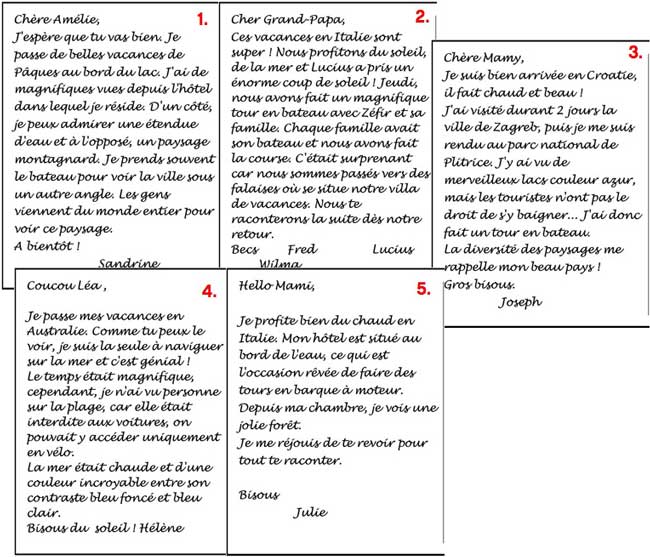 1.
Chère Amélie,
J'espère que tu vas bien. Je
passe de belles vacances de
Pâques au bord du lac. J'ai de
magnifiques vues depuis l'hôtel
dans lequel je réside. D'un côté,
je peux admirer une étendue
d'eau et à l'opposé, un paysage
montagnard. Je prends souvent
le bateau pour voir la ville sous
un autre angle. Les gens
viennent du monde entier pour
voir ce paysage.
A bientôt !
Sandrine
2.
Cher Grand-Papa,
Ces vacances en Italie sont
super ! Nous profitons du soleil,
de la mer et Lucius a pris un
énorme coup de soleil ! Jeudi,
nous avons fait un magnifique
tour en bateau avec Zéfir et sa
famille. Chaque famille avait
son bateau et nous avons fait
la course. C'était surprenant
car nous sommes passés vers des
falaises où se situe notre villa
de vacances. Nous te
raconterons la suite dès notre
retour.
Becs Fred Lucius
Wilma
3.
Chère Mamy,
Je suis bien arrivée en Croatie,
il fait chaud et beau !
J'ai visité durant 2 jours la
ville de Zagreb, puis je me suis
rendu au parc national de
Plitrice. J'y ai vu de
merveilleux lacs couleur azur,
mais les touristes n'ont pas le
droit de s'y baigner... J'ai donc
fait un tour en bateau.
La diversité des paysages me
rappelle mon beau pays !
Gros bisous.
Joseph
4.
Coucou Léa ,
Je passe mes vacances en
Australie. Comme tu peux le
voir, je suis la seule à naviguer
sur la mer et c'est génial !
Le temps était magnifique,
cependant, je n'ai vu personne
sur la plage, car elle était
interdite aux voitures, on
pouvait y accéder uniquement
en vélo.
La mer était chaude et d'une
couleur incroyable entre son
contraste bleu foncé et bleu
clair.
Bisous du soleil ! Hélène
5.
Hello Mami,
Je profite bien du chaud en
Italie. Mon hôtel est situé au
bord de l'eau, ce qui est
l'occasion rêvée de faire des
tours en barque à moteur.
Depuis ma chambre, je vois une
jolie forêt.
Je me réjouis de te revoir pour
tout te raconter.
Bisous
Julie